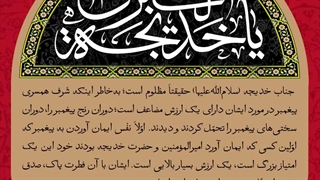 یا خدیجة الکبری
جناب خدیجه (سلام‌الله‌علیها) حقیقتاً مظلوم است؛ به‌خاطر اینکه شرف همسری
پیغمبر در مورد ایشان دارای یک ارزش مضاعف است؛ دوران رنج پیغمبر را، دوران
سختی‌های پیغمبر را تحمّل کردند و دیدند. اوّلاً نفْس ایمان آوردن به پیغمبر که
اوّلین کسی که ایمان آورد امیرالمؤمنین و حضرت خدیجه بودند خود این یک
امتیاز بزرگ است، یک ارزش بسیار بالایی است. ایشان با آن فطرت پاک، صدق